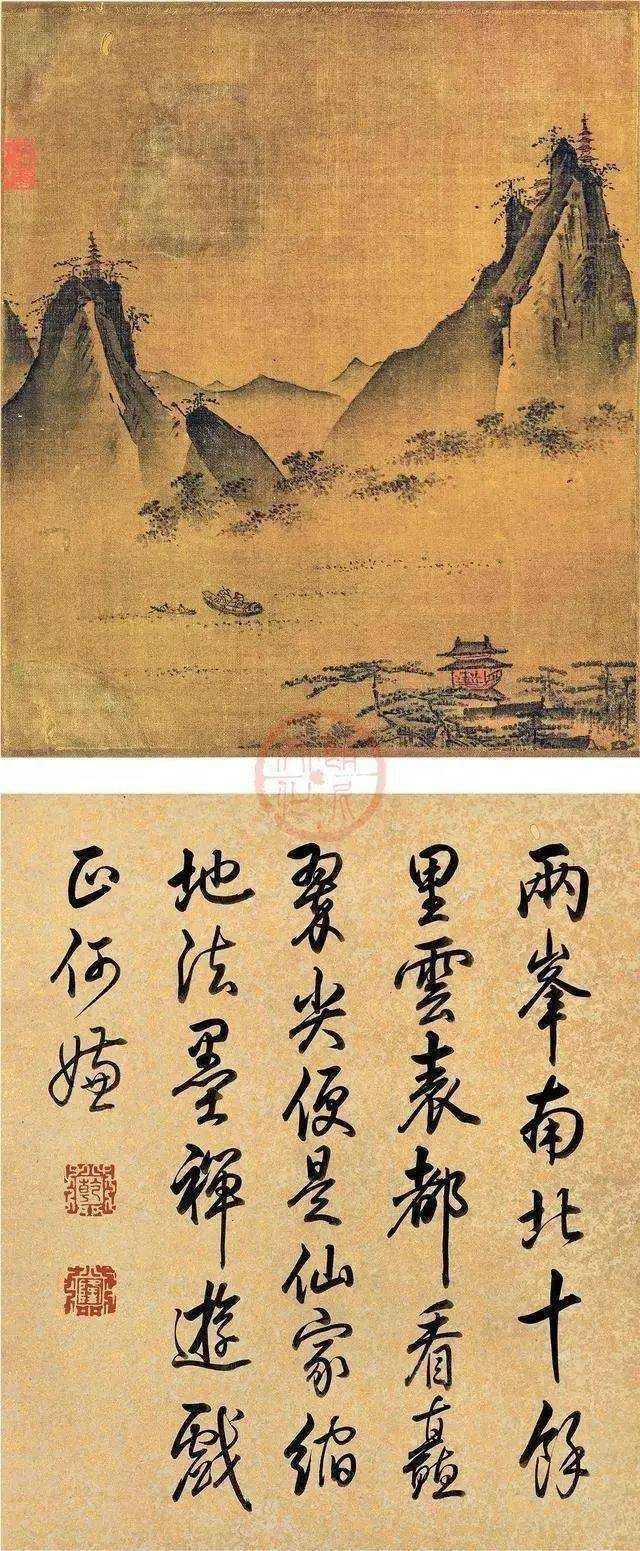 兩峯南北十餘
里雲表都看矗
翠尖便是仙家縮
地法墨禪遊戲
正何嫌